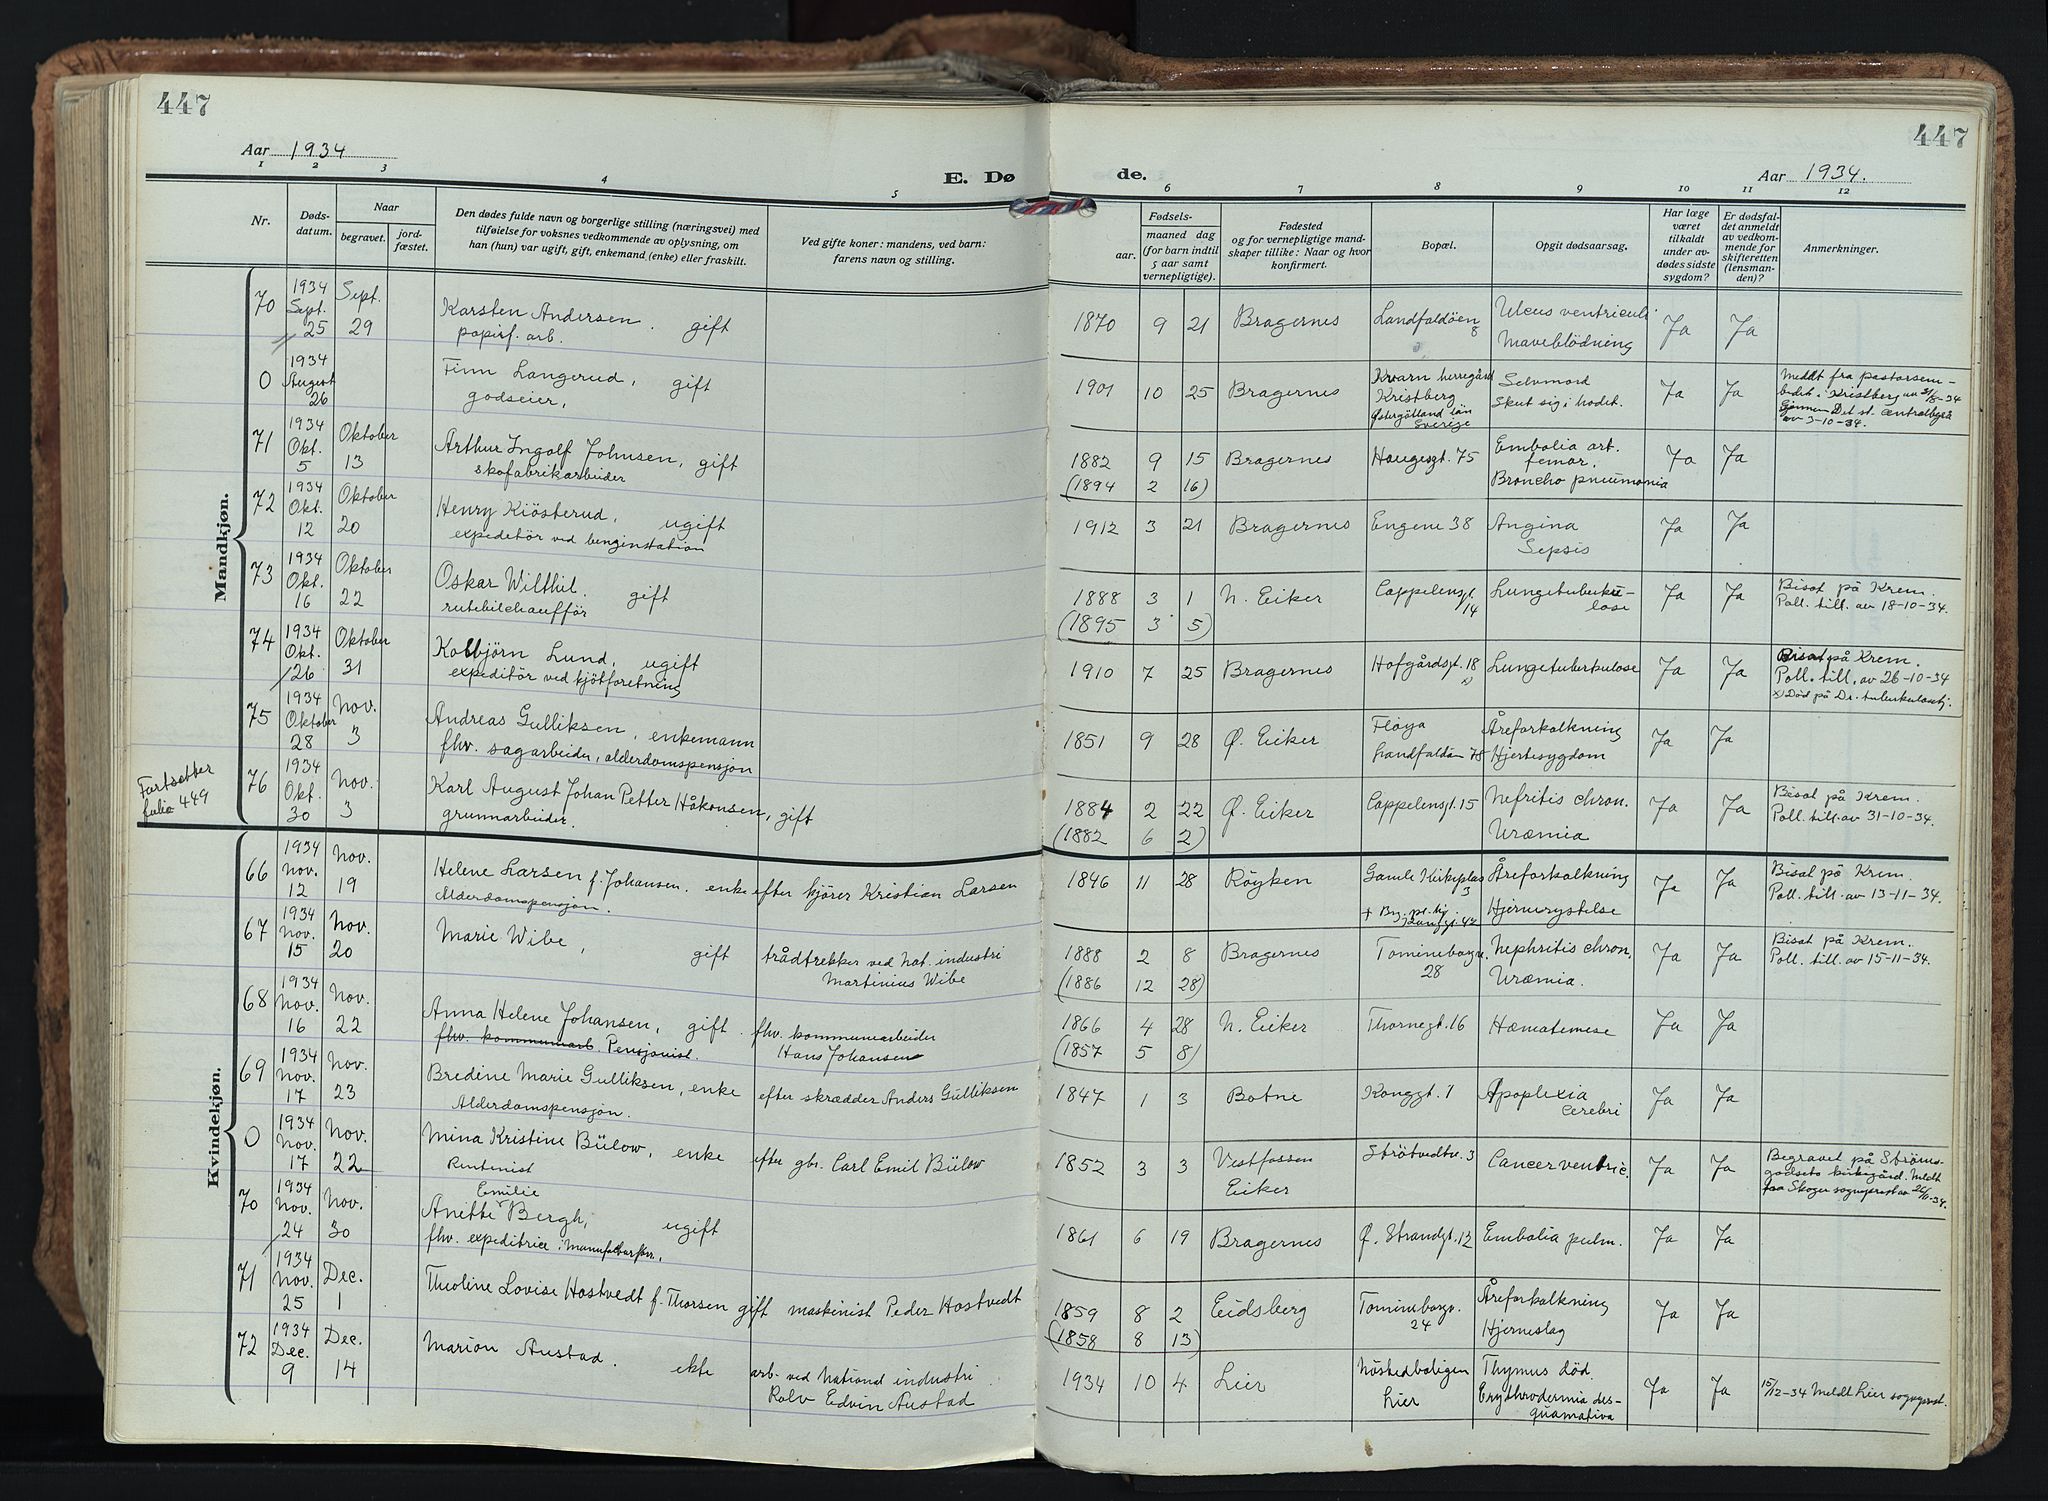 447
447
Aar 1934
Aar 1934.
E. Dø
de.
1 2 3 4 5 6 7 8 9 10 11 12
Nr.
Døds-
datum.
Naar
begravet.
jord-
fæstet.
Den dødes fulde navn og borgerlige stilling (næringsvei) med
tilføielse for voksnes vedkommende av oplysning, om
han (hun) var ugift, gift, enkemand (enke) eller fraskilt.
Ved gifte koner: mandens, ved barn:
farens navn og stilling.
Fødsels-
aar. maaned dag
(for barn indtil
5 aar samt
vernepligtige).
Fødested
og for vernepligtige mand-
skaper tillike: Naar og hvor
konfirmert.
Bopæl.
Opgit dødsaarsag.
Har læge
været
tilkaldt
under av-
dødes sidste
sygdom?
Er dødsfal-
det anmeldt
av vedkom-
mende for
skifteretten
(lensman-
den)?
Anmerkninger.
Mandkjøn.
70 1934 Sept. 25 Sept. 29 Karsten Andersen. gift
papirf. arb.
1870 9 21 Bragernes Landfaldöen 8 Ulcus ventriculi
Maveblödning Ja Ja
0 1934 August 26 Finn Langerud, gift
godseier,
1901 10 25 Bragernes Kvarn herregård
Kristberg
Östergötland län
Sverige
Selvmord
Skut sig i hodet. Ja Ja
Meddt fra pastorsem-
bedet i Kristberg av 31/8-34
Gjennem Det st. Centralbyrå
av 3-10-34.
71 1934 Okt. 5 Oktober 13 Arthur Ingolf Johnsen, gift
skofabrikarbeider
1882 9 15 Bragernes Haugesgt. 75 Embolia art.
femor.
(1894 2 16) Broncho pneumonia Ja Ja
72 1934 Okt. 12 Oktober 20 Henry Kiösterud, ugift
expeditör ved benzinstation
1912 3 21 Bragernes Engene 38 Angina
Sepsis Ja Ja
73 1934 Okt. 16 Oktober 22 Oskar Wilthil. gift
rutebilchaufför
1888 3 1 N. Eiker Cappelensgt. 14 Lungetuberku-
lose Ja Ja
(1895 3 5)
Bisat på Krem.
Poll. till. av 18-10-34.
74 1934 Okt. 26 Oktober 31 Kolbjörn Lund, ugift
expeditör ved kjötforetning
1910 7 25 Bragernes Hofgårdsgt. 18 x) Lungetuberkulose Ja Ja
Bisat på Krem.
Poll. till. av 26-10-34
x) Död på Dr. tuberkulosehj.
75 1934 Oktober 28 Nov. 3 Andreas Gulliksen, enkemann
fhv. sagarbeider, alderdomspensjon
1851 9 28 Ø. Eiker Fløya
Landfaldön 78 Åreforkalkning
Hjertesygdom Ja Ja
76 1934 Okt. 30 Nov. 3 Karl August Johan Petter Håkonsen, gift
grunnarbeider.
1884 2 22 Ø. Eiker Cappelensgt. 15 Nefritis chron.
(1882 6 2) Uræmia Ja Ja
Bisat på Krem.
Poll. till. av 31-10-34.
Fortsetter
folio 449
Kvindekjøn.
66 1934 Nov. 12 Nov. 19 Helene Larsen f. Johansen. enke efter kjörer Kristian Larsen
Alderdomspensjon.
1846 11 28 Röyken Gamle Kirkeplas 3 Åreforkalkning
Hjernerystelse Ja Ja
Bisat på Krem.
Poll. till. av 13-11-34.
67 1934 Nov. 15 Nov. 20 Marie Wibe, gift trådtrekker ved Nat. industri
Martinius Wibe
1888 2 8 Bragernes Tomineborgv. 28 Nephritis chron,
(1886 12 28) Uræmia. Ja Ja
Bisat på Krem.
Poll. till. av 15-11-34.
68 1934 Nov. 16 Nov. 22 Anna Helene Johansen, gift. fhv. kommunearbeider
fhv. kommunearb. Pensjonist. Hans Johansen
1866 4 28 N. Eiker Thornegt. 16 Hæmatemese Ja Ja
(1857 5 8)
69 1934 Nov. 17 Nov. 23 Bredine Marie Gulliksen, enke efter skrædder Anders Gulliksen
Alderdomspensjon.
1847 1 3 Botne Konggt. 1 Apoplexia
Cerebri Ja Ja
0 1934 Nov. 17 Nov. 22 Mina Kristine Bülow, enke efter gbr. Carl Emil Bülow
Rentenist
1852 3 3 Vestfossen
Eiker Strötvedtv. 3 Cancer ventric. Ja Ja
Begravet på Ströms-
godsets kirkegård. Meldt
fra Skoger sogneprest av 26/11-34.
70 1934 Nov. 24 Nov. 30 Emilie
Anette Bergh, ugift
fhv. expeditrice i Manufakturforr.
1861 6 19 Bragernes Ø. Strandgt. 12 Embolia pulm. Ja Ja
71 1934 Nov. 25 Dec. 1 Theoline Lovise Hostvedt f. Thorsen gift maskinist Peder Hostvedt
1859 8 2 Eidsberg Tomineborgv. 24 Åreforkalkning
(1858 8 13) Hjerneslag Ja Ja
72 1934 Dec. 9 Dec. 14 Marion Austad. ekte arb. ved National industri
Rolv Edvin Austad
1934 10 4 Lier Nöstedboligen
Lier Thymus död.
Erythrodermia des-
quamativa Ja Ja
15/12-34 Meldt Lier sogneprest.